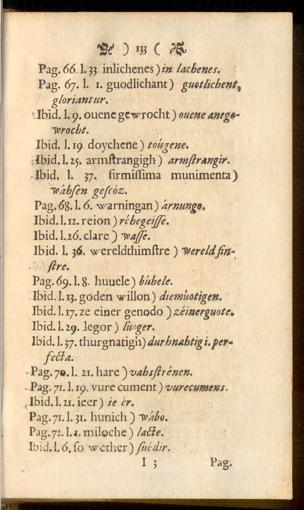 ) 133 (
Pag. 66. l. 33 inlichenes) in lachenes.
Pag. 67. l. 1. guodlichant) guotlichent,
gloriantur.
Ibid. l. 9. ouene gewrocht) ouene anege-
wrocht.
Ibid. l. 19 doychene) toúgene.
Ibid. l. 25. armſtrangigh) armſtrangir.
Ibid. l. 37. firmiſſima munimenta)
wáhſen geſcóz.
Pag. 68. l. 6. warningan) árnungo.
Ibid. l. 12. reion) réhegeiſſe.
Ibid. l. 26. clare) waſſe.
Ibid. l. 36. wereldthimſtre) wereldfin-
ſtre.
Pag. 69. l. 8. huuele) búhele.
Ibid. l. 13. goden willon) diemúotigen.
Ibid. l. 17. ze einer genodo) zéinerguote.
Ibid. l. 29. legor) luoger.
Ibid. l. 37. thurgnatigh) durhnahtig i. per-
fecta.
Pag. 70. l. 21. hare) vahsſtrénen.
Pag. 71. l. 19. vure cument) vurecumens.
Ibid. l. 21. ieer) ie ér.
Pag. 71. l. 31. hunich) wábo.
Pag. 72. l. 1. miloche) lacte.
Ibid. l. 6. ſo wether) ſuédir.
I 3 Pag.